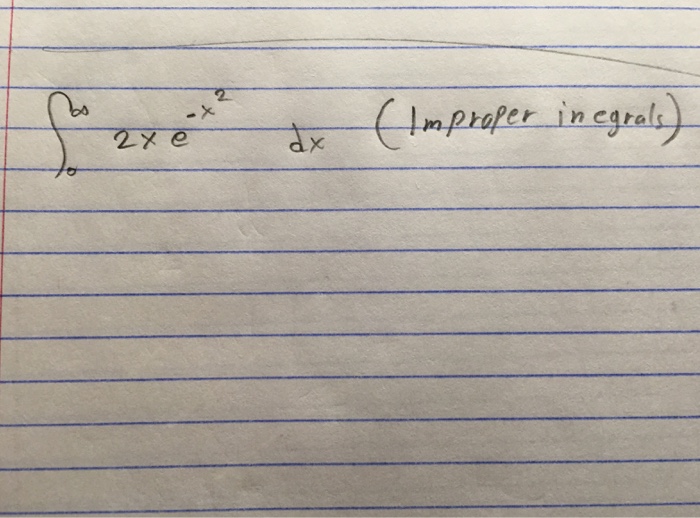 ∫₀^∞ 2x e^{-x^2} dx (Improper inegrals)